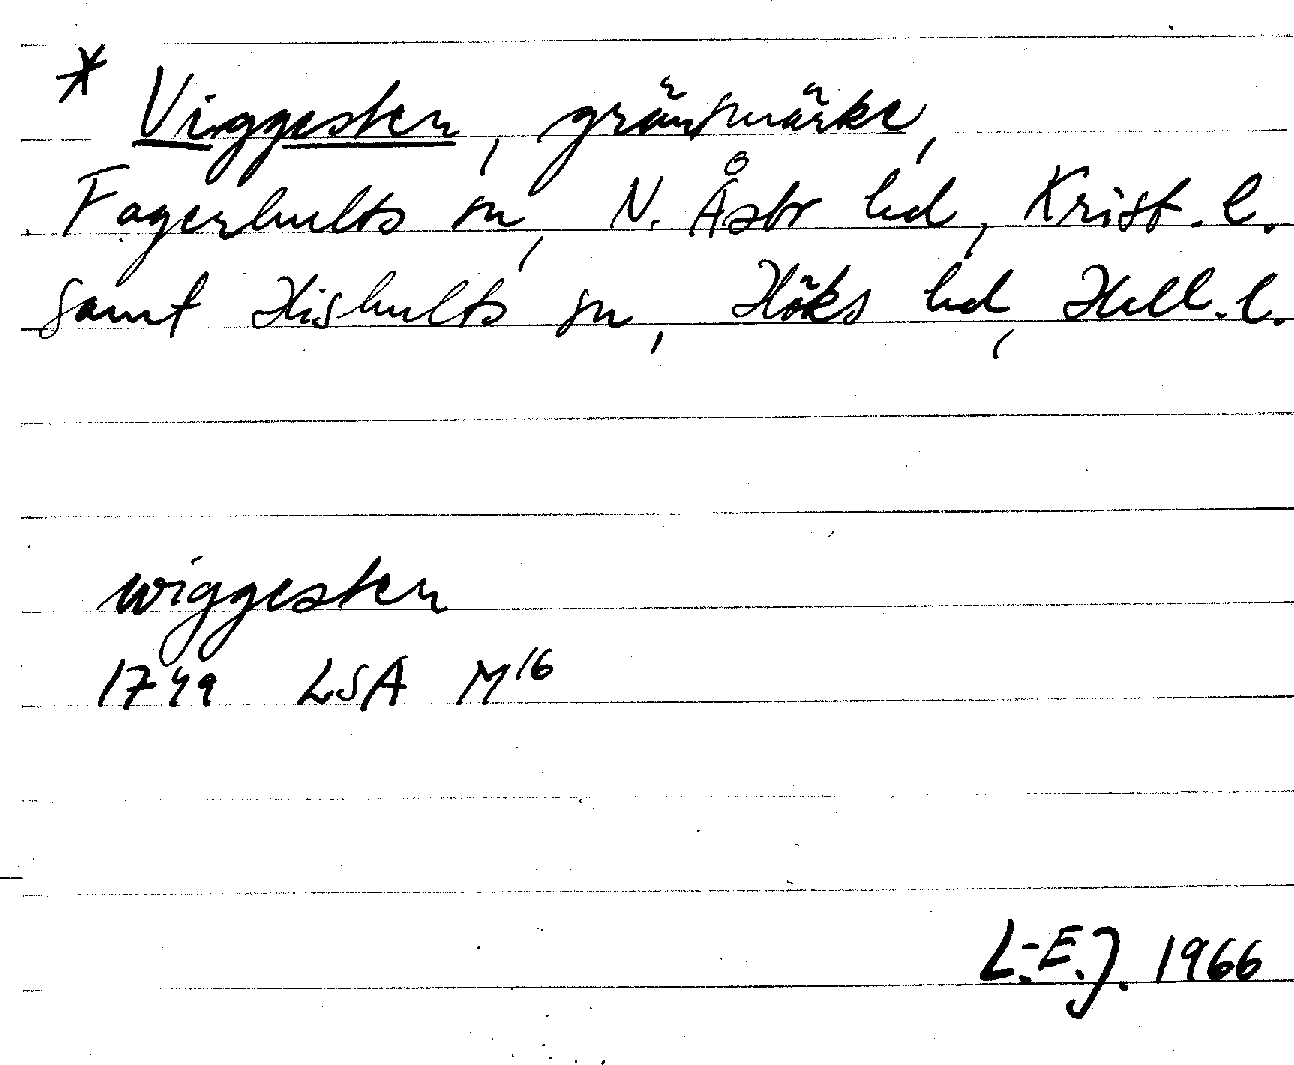 * Viggesten, gränsmärke,
Fagerhults sn, N. Åsbo hd, Krist. l.
samt Hishults sn, Höks hd, Hall. l.
wiggesten
1749 LSA M16
L.-E.J. 1966